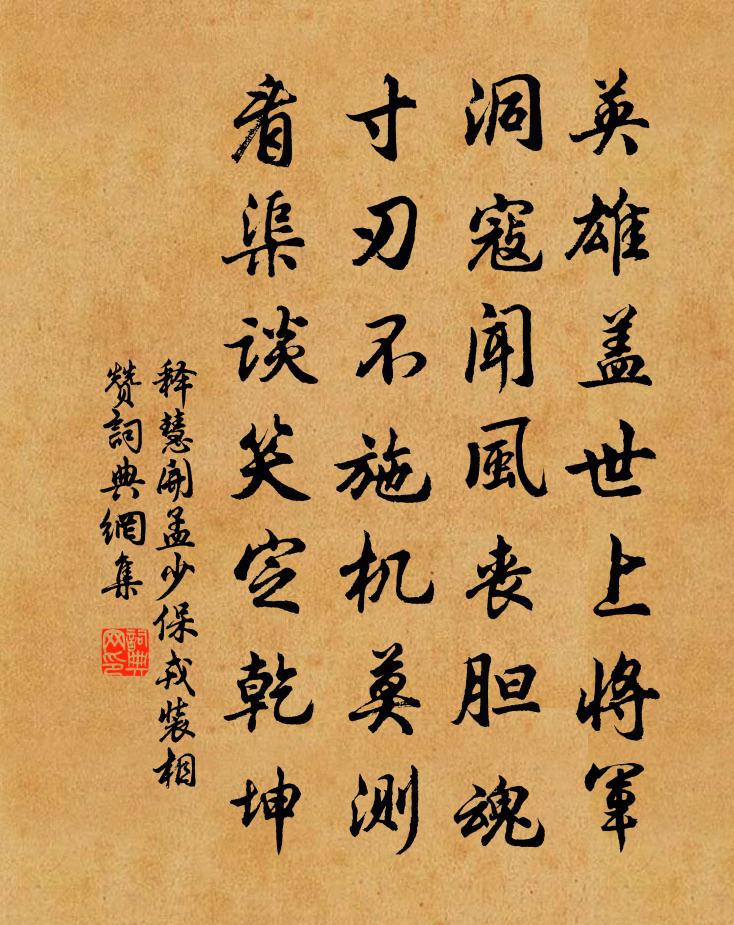 英雄盖世上将军
洞寇闻風丧胆魂
寸刃不施机莫测
看渠谈笑定乾坤
释慧開孟少保戎裝相
赞詞典網集
詞典网印